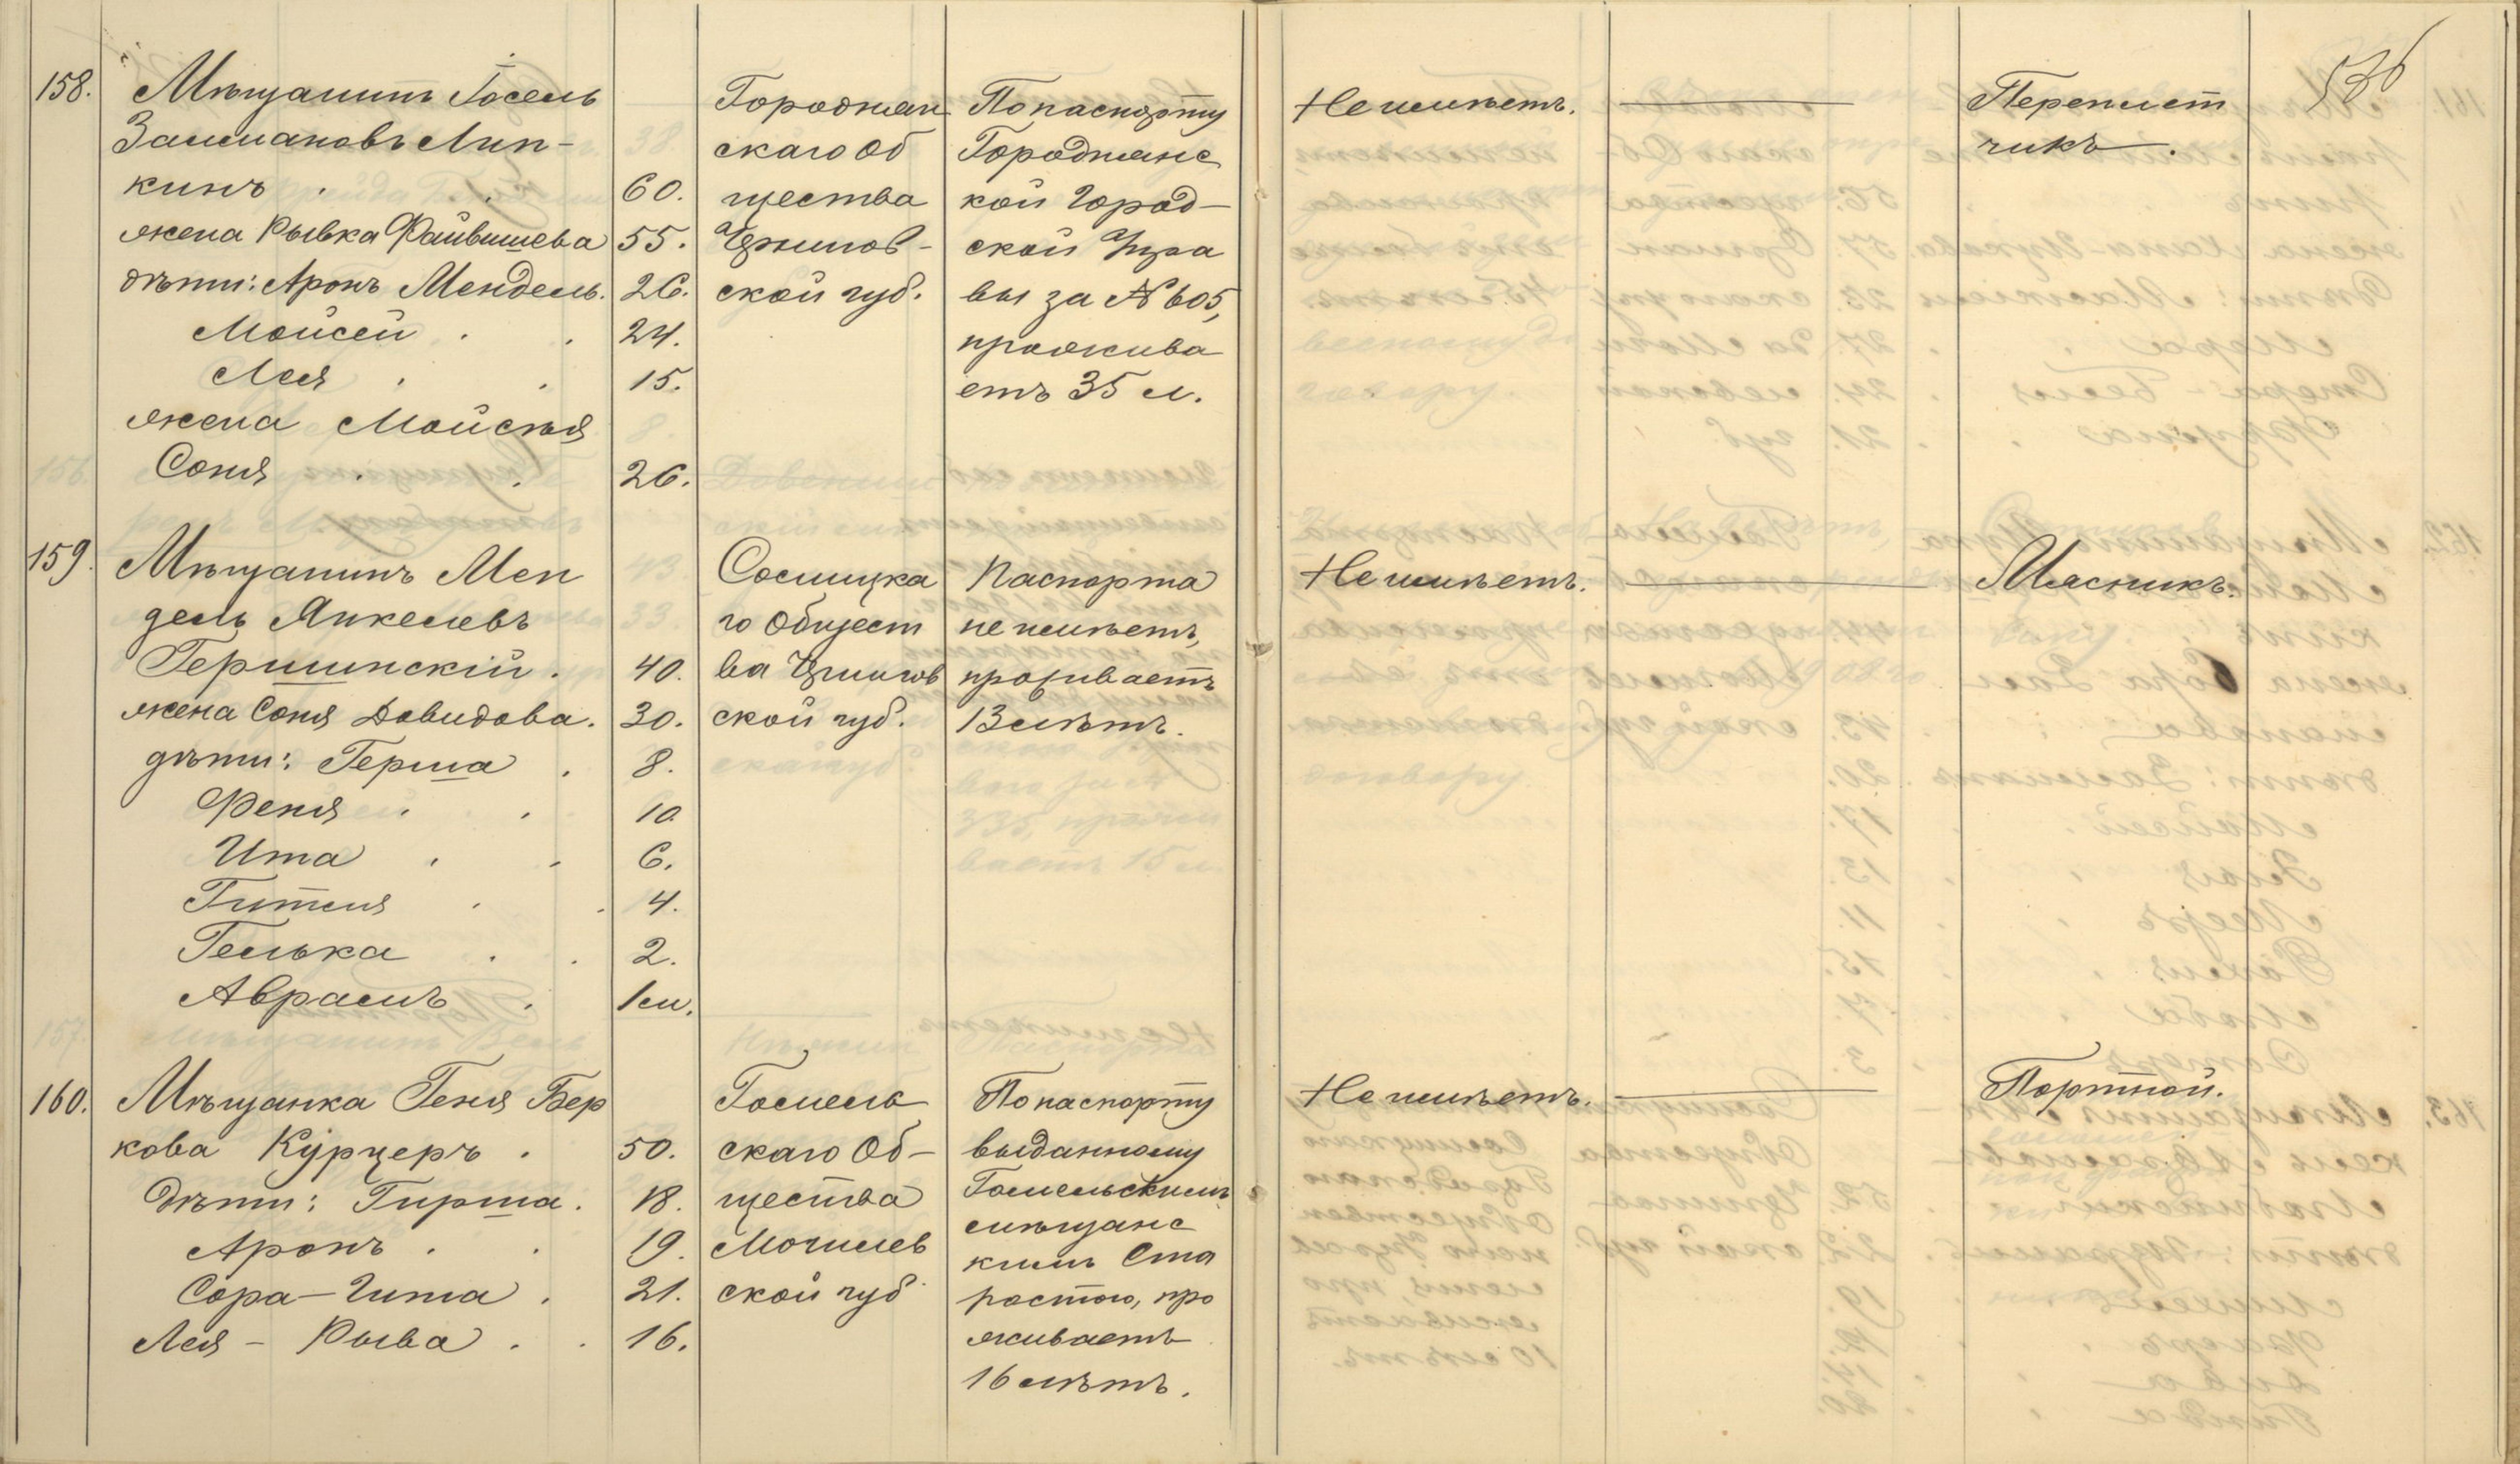 536
158.
Мѣщанинъ Іосель
Залмановъ Лип-
кинъ . . 60.
жена Рывка Файвишева 55.
дѣти: Аронъ Мендель. 26.
Мойсей . . 24.
Лея . . 15.
жена Мойсѣя
Соня . . 26.
Городнян
скаго Об
щества
Чернигов-
ской губ.
По паспорту
Городнянс
кой Город-
ской Упра
вы за № 605,
прожива
етъ 35 л.
Не имѣетъ.
Переплет
чикъ.
159.
Мѣщанинъ Мен
дель Янкелевъ
Гершинскій . 40.
жена Соня Довидова. 30.
дѣти: Герша . 8.
Феня . . 10
Ита . . 6.
Гитля . . 4.
Гелька . . 2.
Аврамъ . 1 м.
Сосницка
го Общест
ва Чернигов
ской губ.
Паспорта
не имѣетъ,
проживаетъ
13 лѣтъ.
Не имѣетъ.
Мясникъ.
160.
Мѣщанка Геня Бер
кова Курцеръ . 50.
дѣти: Гирша . 18.
Аронъ . . 19.
Сора-Гита . 21.
Лея - Рыва . . 16.
Гомель
скаго Об-
щества
Могилев
ской губ
По паспорту
выданному
Гомельскимъ
мѣщанс
кимъ Ста
ростою, про
живаетъ
16 лѣтъ.
Не имѣетъ.
Портной.